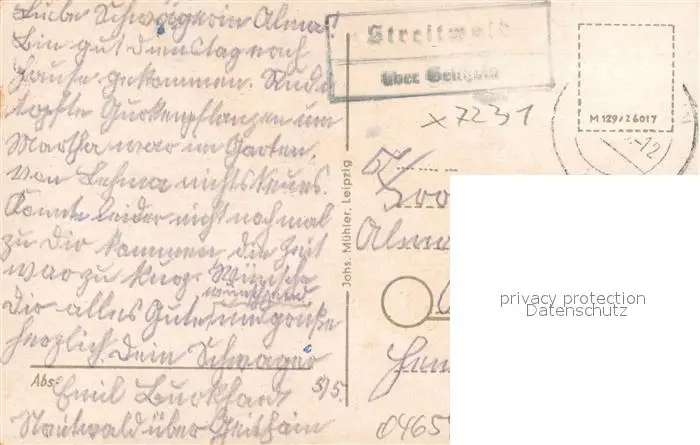 Liebe Schwägerin Alma!
Bin gut Dienstag nach
Hause gekommen. Rudi
topfte Gurkenpflanzen um
Martha war im Garten,
von Lehma nichts Neues.
Konnte leider nicht noch mal
zu Dir kommen, die Zeit
war zu knap. Wünsche
Dir alles Gute und grüße
herzlich Dein Schwager
Abs.
Emil Burkhard
Streitwald über Geithain
Streitwald
über Geithain
x7231
M 129/26017
Johs. Mühler, Leipzig
5/5
Alma
0465
privacy protection
Datenschutz